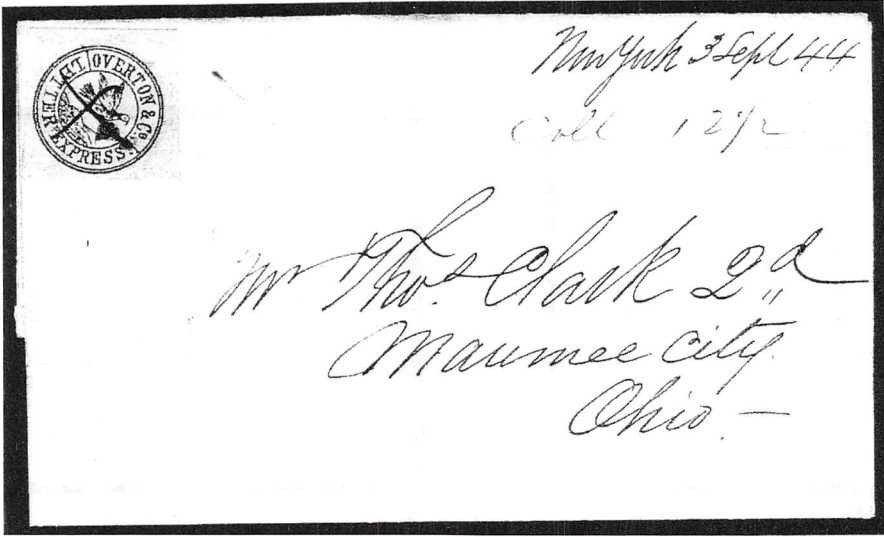 OVERTON & Co
LETTER EXPRESS.
New York 3 Sept 44
Coll 12 1/2
Mr Thos. Clark 2d
Maumee City.
Ohio. —